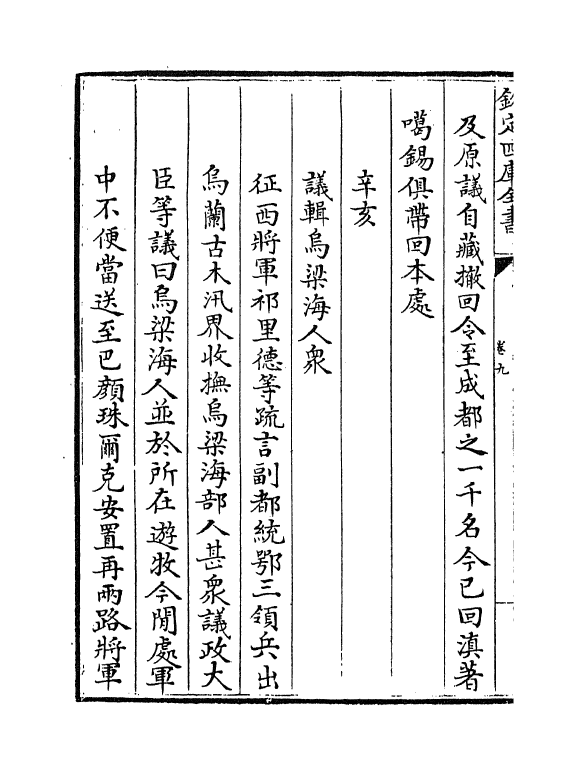 欽定四庫全書
卷九
及原議自藏撤回令至成都之一千名今已回滇著
噶錫俱帶回本處
辛亥
議輯烏梁海人衆
征西將軍祁里德等疏言副都統鄂三領兵出
烏蘭古木汛界收撫烏梁海部人甚衆議政大
臣等議曰烏梁海人並於所在遊牧今閒處軍
中不便當送至巴顔珠爾克安置再兩路將軍